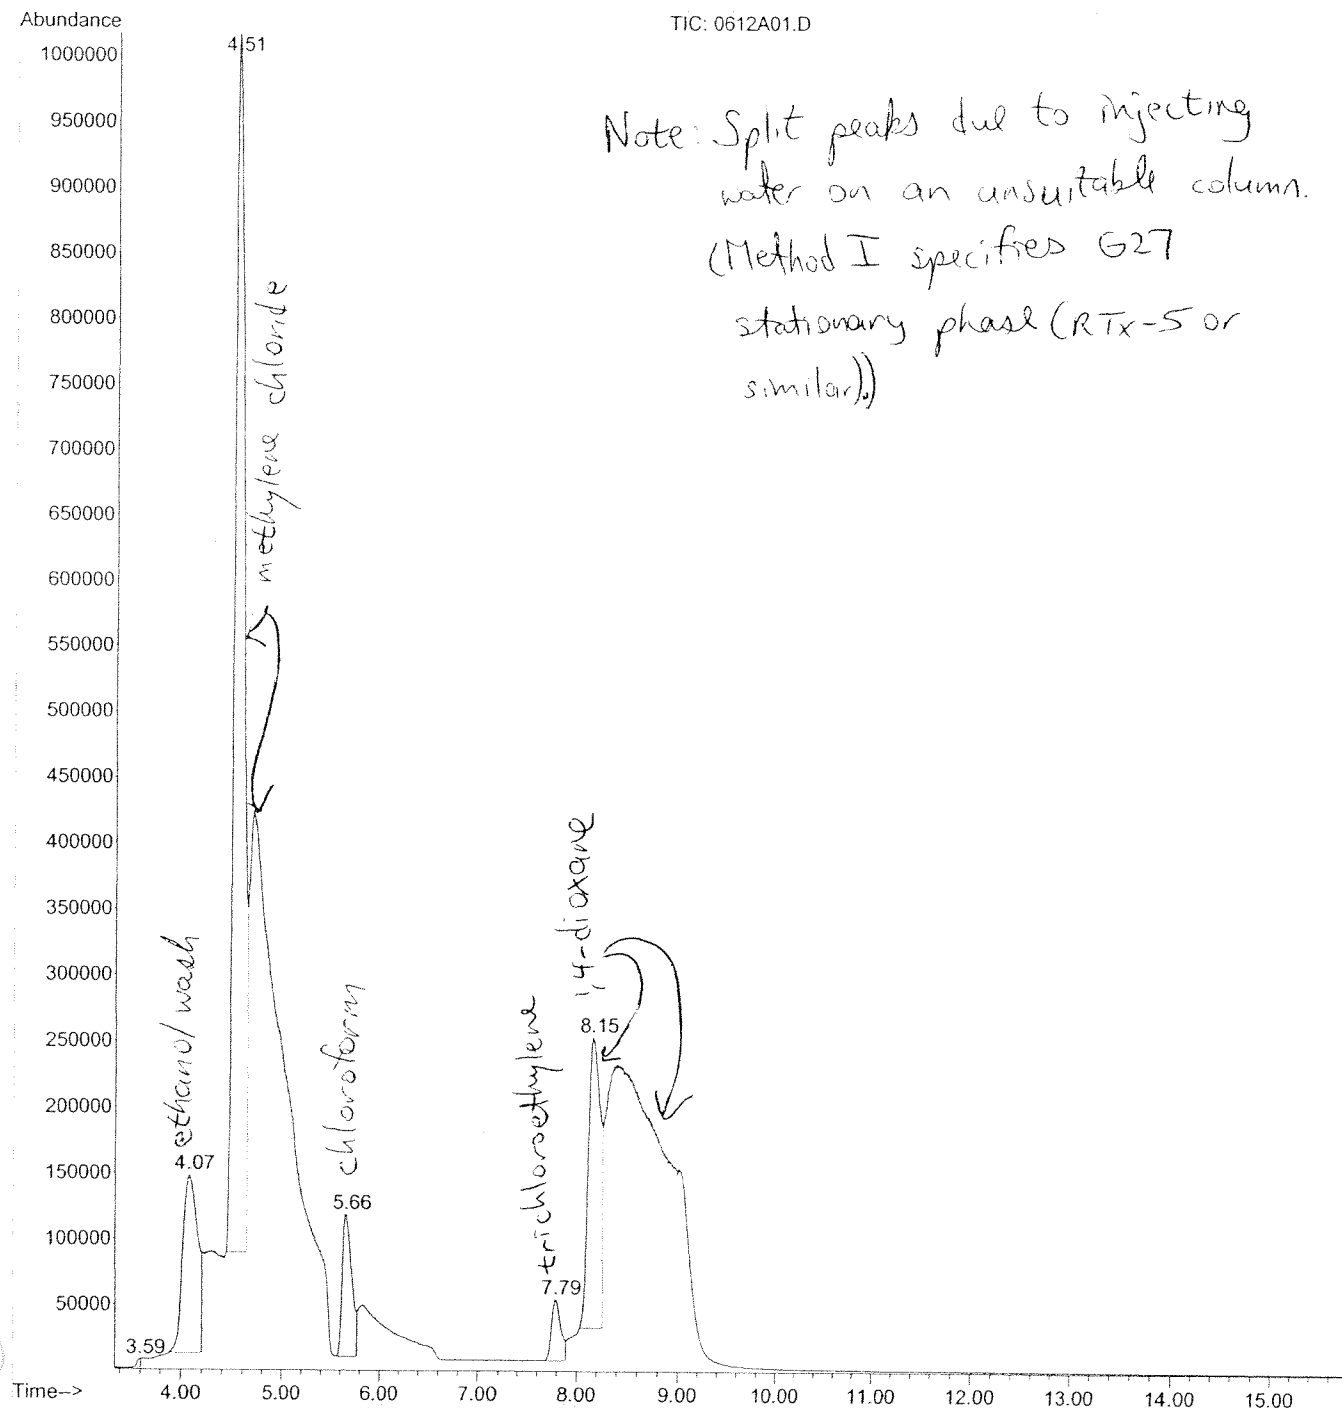 Abundance
TIC: 0612A01.D
1000000
950000
900000
850000
800000
750000
700000
650000
600000
550000
500000
450000
400000
350000
300000
250000
200000
150000
100000
50000
Note: Split peaks due to injecting
water on an unsuitable column.
(Method I specifies G27
stationary phase (RTx-5 or
similar)).
3.59
4.07
ethanol wash
4.51
methylene chloride
5.66
chloroform
7.79
trichloroethylene
8.15
1,4-dioxane
Time-->
4.00 5.00 6.00 7.00 8.00 9.00 10.00 11.00 12.00 13.00 14.00 15.00